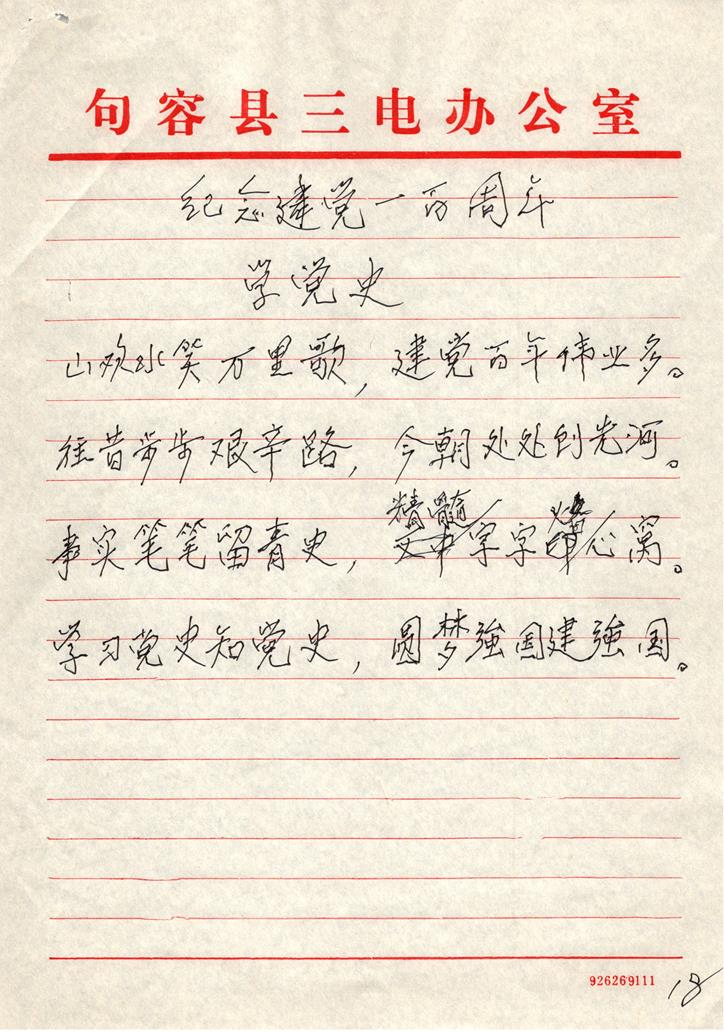 句容县三电办公室
纪念建党一百周年
学党史
山欢水笑万里歌，建党百年伟业多。
往昔步步艰辛路，今朝处处创先河。
精髓
事实笔笔留青史，文中字字印心窝。
学习党史知党史，圆梦強国建強国。
926269111
18